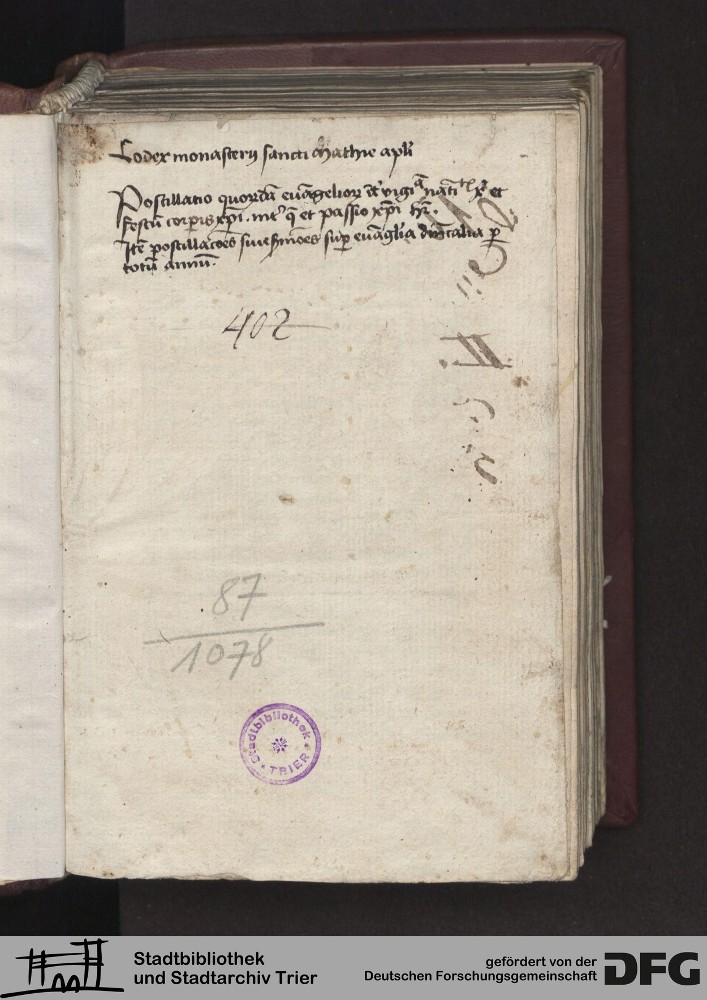 Codex monasterij sancti Mathie apli
Postillatio quorda euagelior a vigi nati xi et
festu corpis xpi. int q et passio xpi hr.
Ite postillacoes siue smoes sup euaglia dnicalia p
totu annu.
402
87
1078
Stadtbibliothek
TRIER
Stadtbibliothek
und Stadtarchiv Trier
gefördert von der
Deutschen Forschungsgemeinschaft
DFG